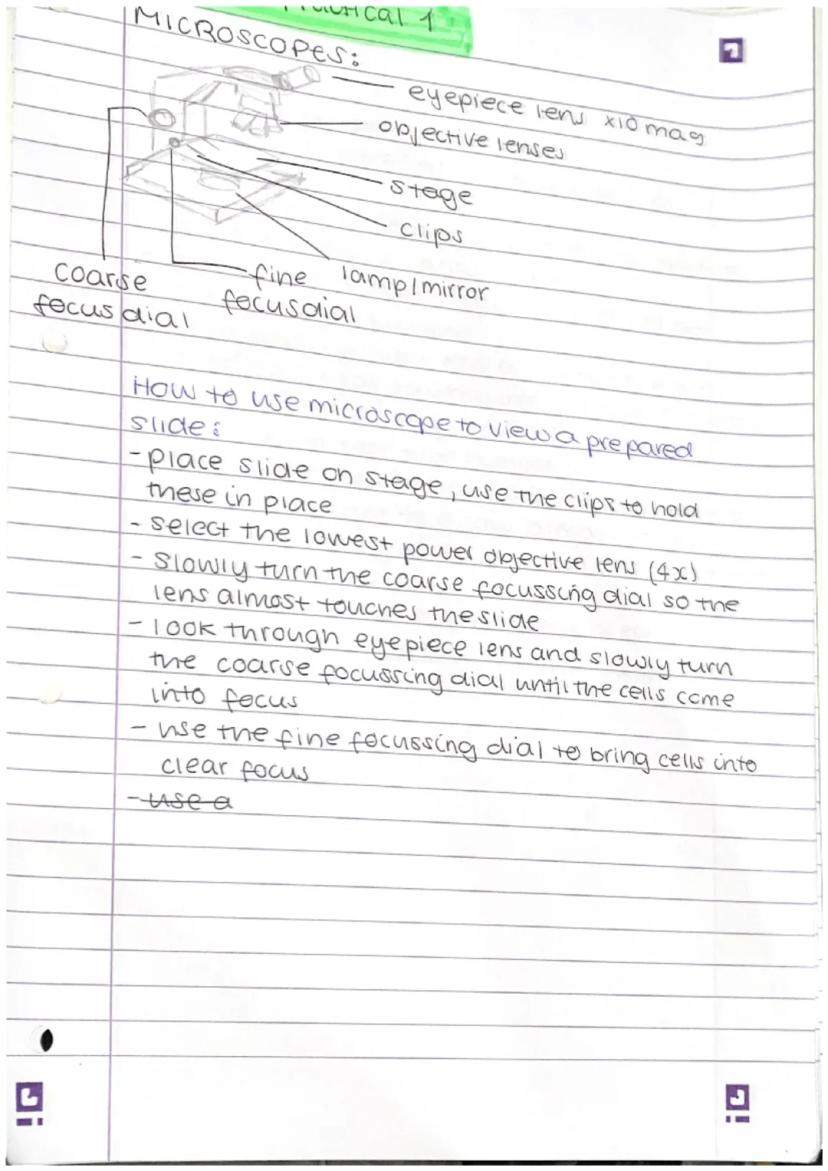 Practical 1
MICROSCOPES:
eyepiece lens x10 mag
objective lenses
stage
clips
lamp/mirror
fine
focusdial
coarse
focus dial
How to use microscope to view a prepared
slide:
- place slide on stage, use the clips to hold
these in place
- select the lowest power objective lens (4x)
- slowly turn the coarse focussing dial so the
lens almost touches the slide
- look through eyepiece lens and slowly turn
the coarse focussing dial until the cells come
into focus
- use the fine focussing dial to bring cells into
clear focus
- use a